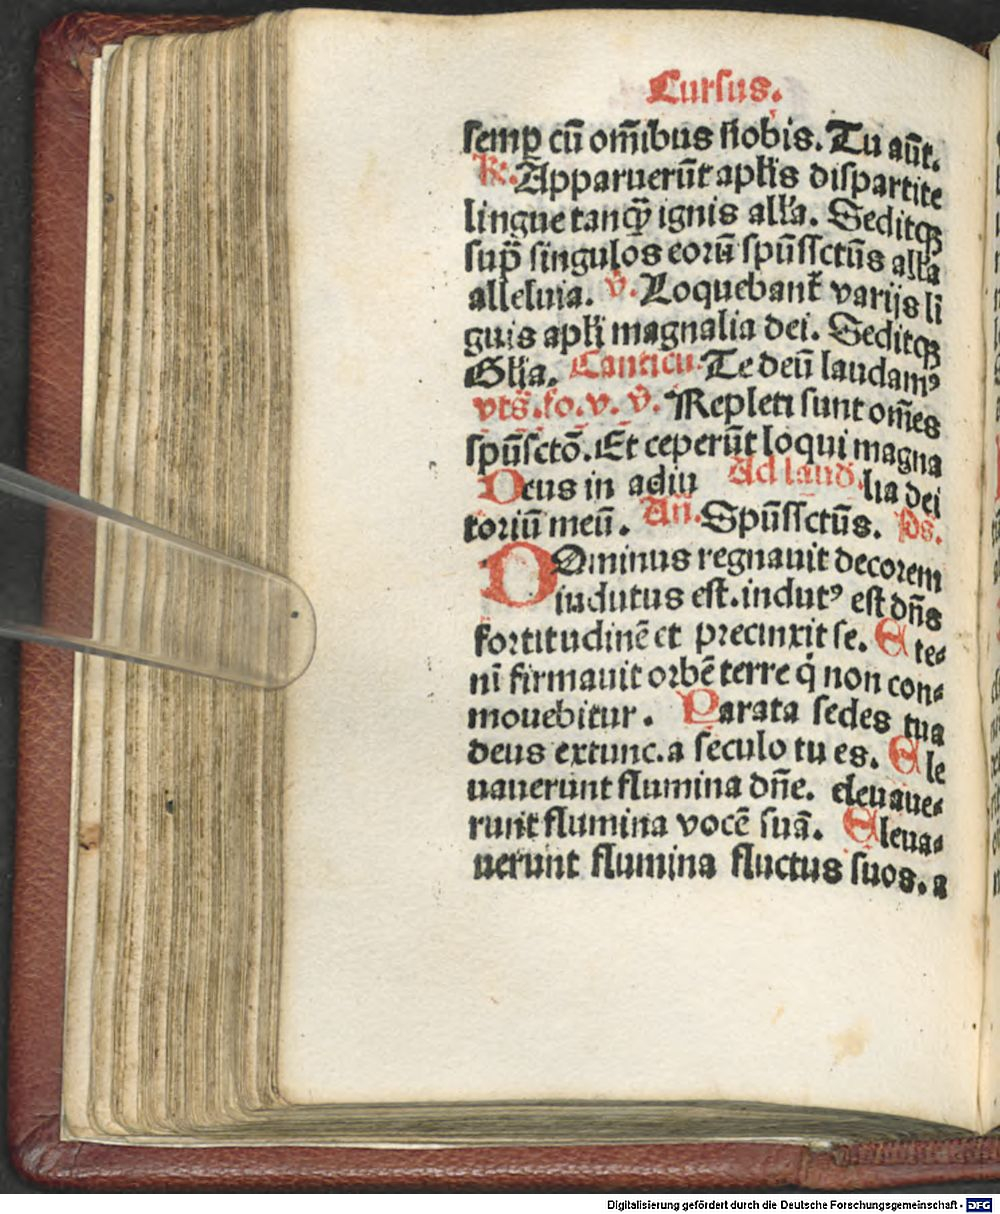 Cursus.
semꝑ cū om̄ibus nobis. Tu aūt.
℟. Apparuerūt apl̄is dispartite
lingue tanqȝ ignis all'a. Seditqȝ
sup̄ singulos eorū spūssctūs all'a
alleluia. v̄. Loquebant̄ varijs li
guis apl̄i magnalia dei. Seditqȝ
Gl'ia. Canticū. Te deū laudamꝰ
v̄. Repleti sunt om̄es
spūsctō. Et ceperūt loqui magna
Deus in adiu Ad laud. lia dei
toriū meū. An̄. Spūssctūs. ps.
DOminus regnauit decorem
indutus est. indutꝰ est dn̄s
fortitudinē et precinxit se. Ete-
nī firmauit orbē terre q̇ non con-
mouebitur. Parata sedes tua
deus extunc. a seculo tu es. Ele
uauerunt flumina dn̄e. eleuaue-
runt flumina vocē suā. Eleua-
uerunt flumina fluctus suos. a
Digitalisierung gefördert durch die Deutsche Forschungsgemeinschaft - DFG